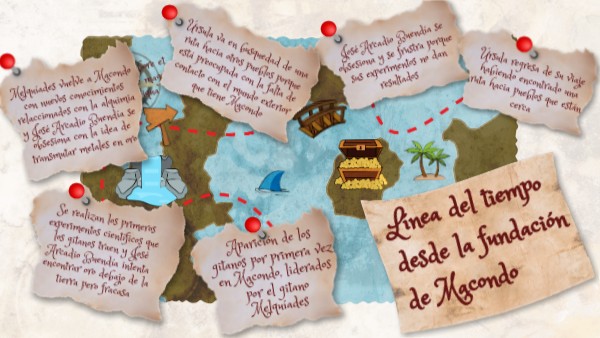 Melquiades vuelve a Macondo
con nuevos conocimientos
relaccionados con la alquimia
y José Arcadio Buendía se
obsesiona con la idea de
transmutar metales en oro
Úrsula va en busqueda de una
ruta hacia otros pueblos porque
está preocupada con la falta de
contacto con el mundo exterior
que tiene Macondo
José Arcadio Buendía se
obsesiona y se frustra porque
sus experimentos no dan
resultados
Úrsula regresa de su viaje
habiendo encontrado una
ruta hacia pueblos que están
cerca
Se realizan los primeros
experimentos científicos que
los gitanos traen y José
Arcadio Buendía intenta
encontrar oro debajo de la
tierra pero fracasa
Aparición de los
gitanos por primera vez
en Macondo, liderados
por el gitano
Melquiades
Línea del tiempo
desde la fundación
de Macondo